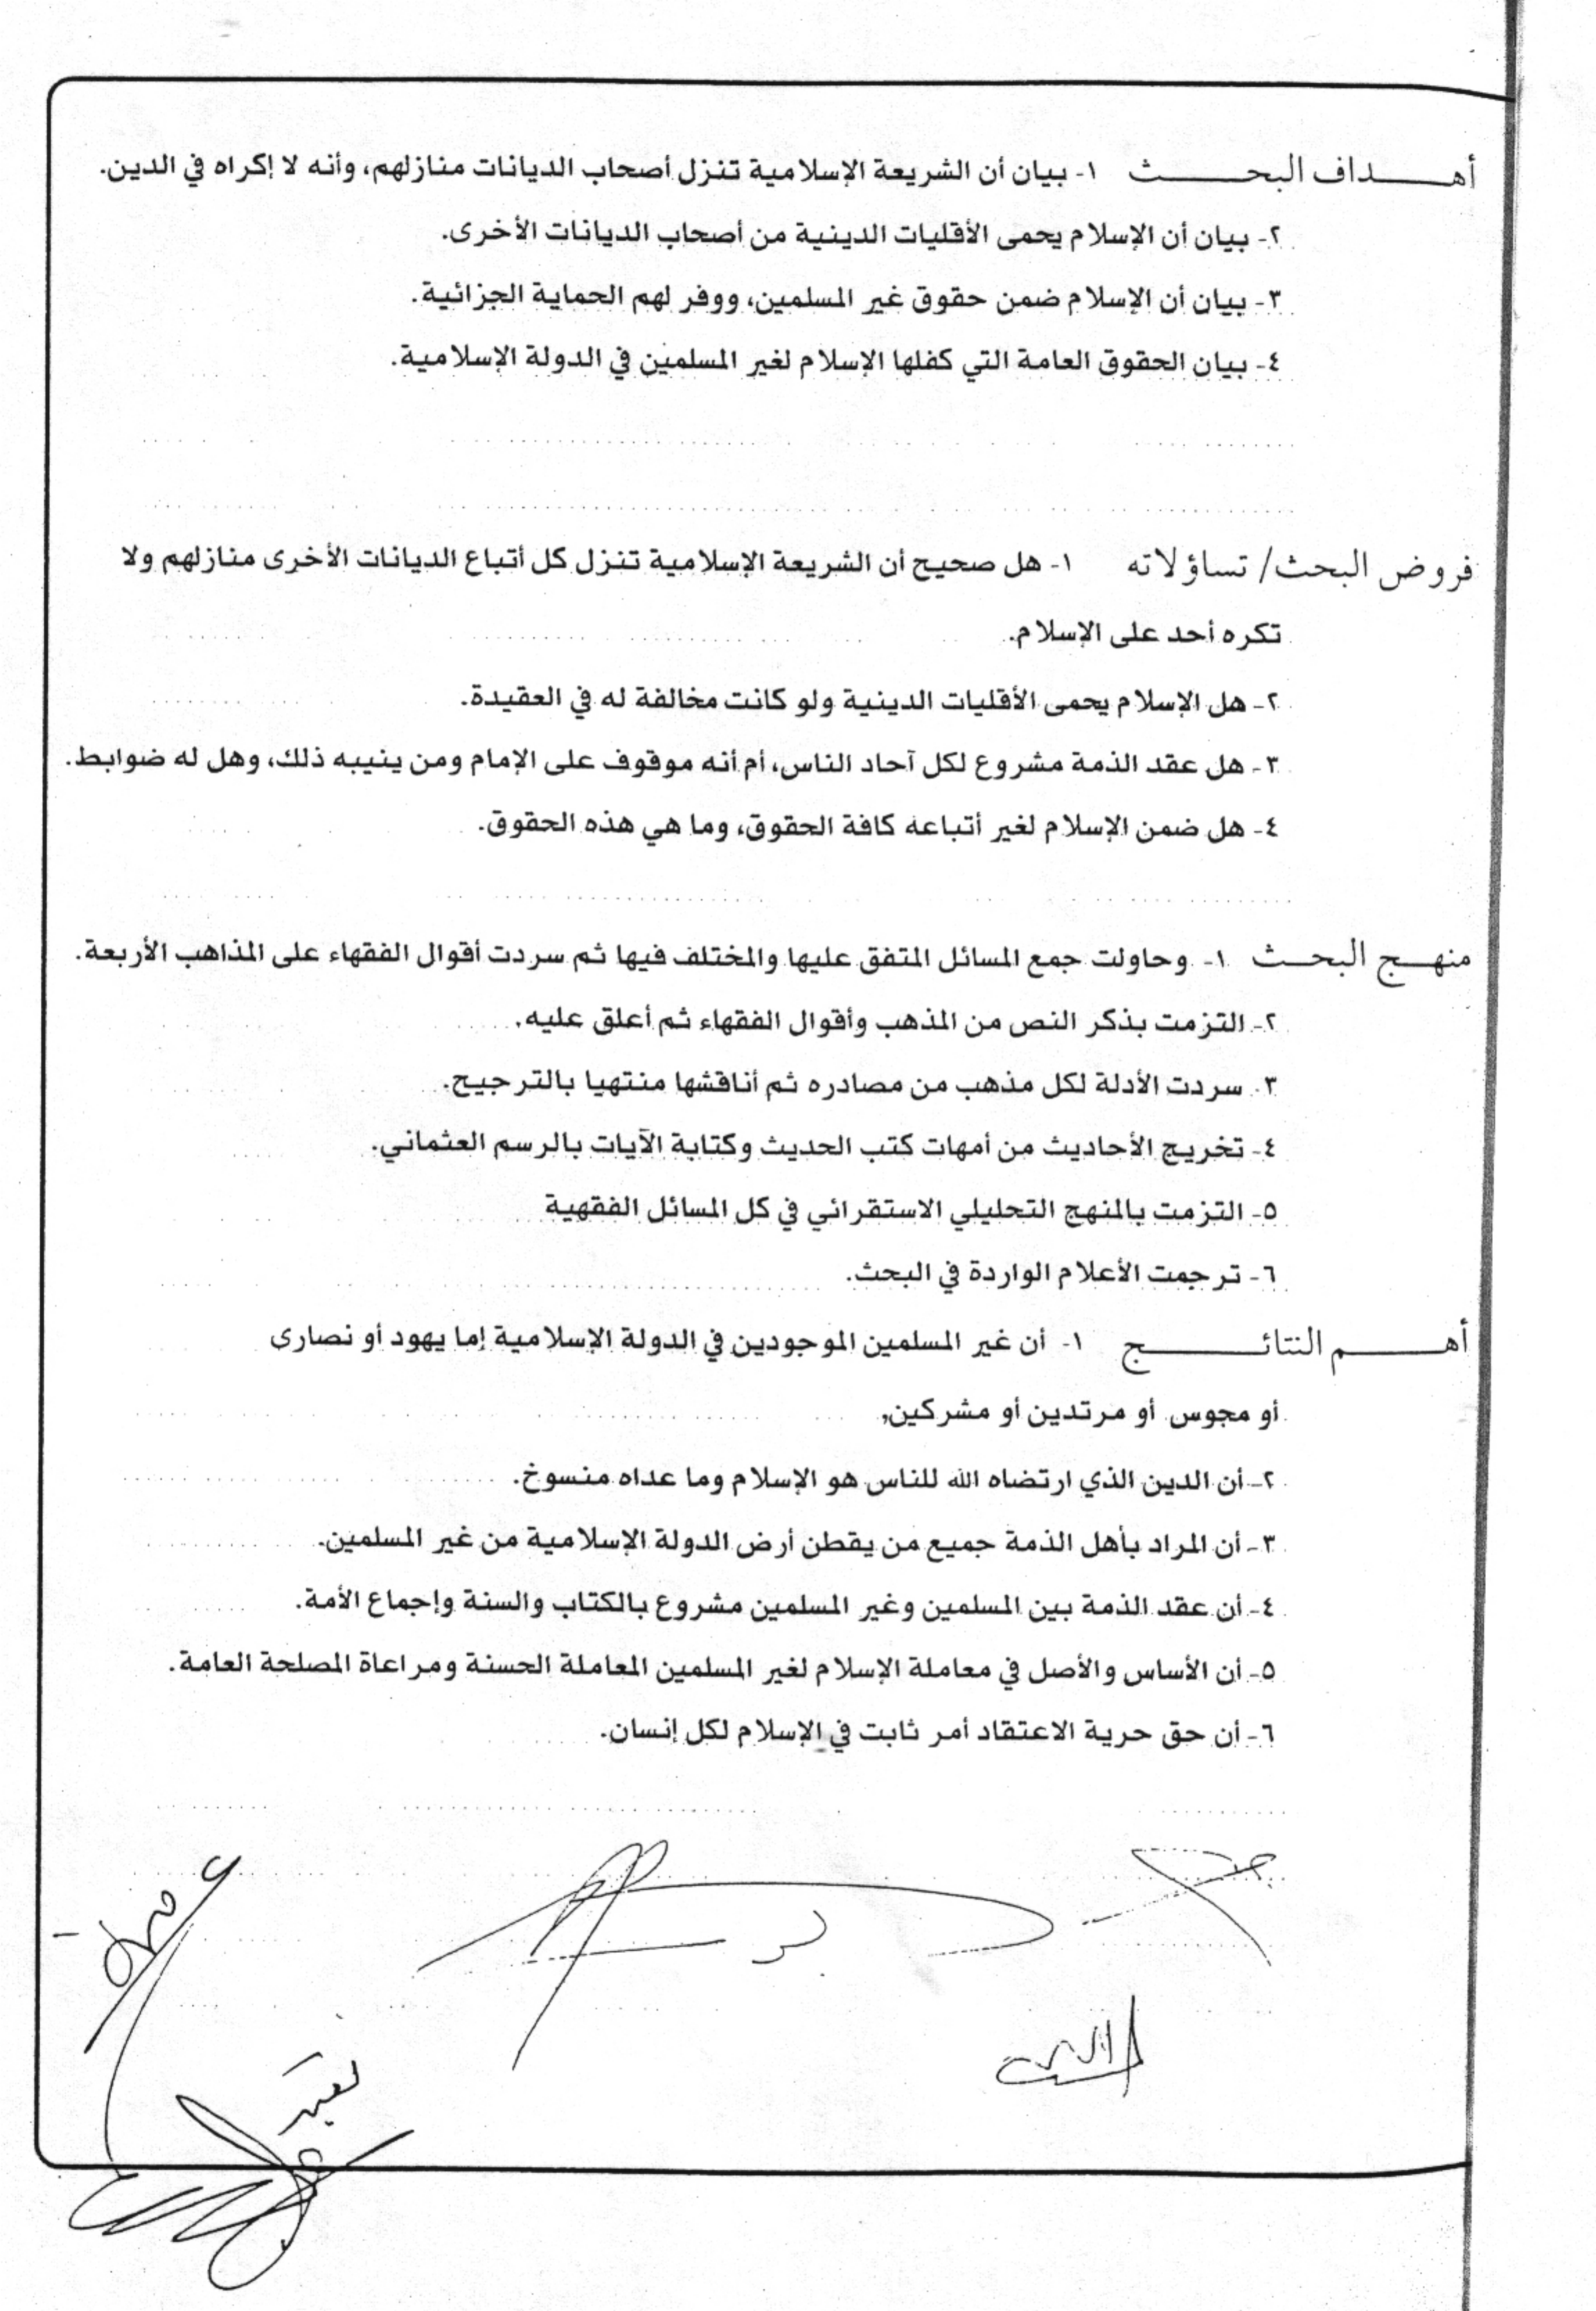 أهـــداف البحـــــث ١- بيان أن الشريعة الإسلامية تنزل أصحاب الديانات منازلهم، وأنه لا إكراه في الدين.
٢- بيان أن الإسلام يحمى الأقليات الدينية من أصحاب الديانات الأخرى.
٣- بيان أن الإسلام ضمن حقوق غير المسلمين، ووفر لهم الحماية الجزائية.
٤- بيان الحقوق العامة التي كفلها الإسلام لغير المسلمين في الدولة الإسلامية.
فروض البحث/ تساؤلاته ١- هل صحيح أن الشريعة الإسلامية تنزل كل أتباع الديانات الأخرى منازلهم ولا
تكره أحد على الإسلام.
٢- هل الإسلام يحمى الأقليات الدينية ولو كانت مخالفة له في العقيدة.
٣- هل عقد الذمة مشروع لكل آحاد الناس، أم أنه موقوف على الإمام ومن ينيبه ذلك، وهل له ضوابط.
٤- هل ضمن الإسلام لغير أتباعه كافة الحقوق، وما هي هذه الحقوق.
منهــج البحــث ١- وحاولت جمع المسائل المتفق عليها والمختلف فيها ثم سردت أقوال الفقهاء على المذاهب الأربعة.
٢- التزمت بذكر النص من المذهب وأقوال الفقهاء ثم أعلق عليه.
٣- سردت الأدلة لكل مذهب من مصادره ثم أناقشها منتهيا بالترجيح.
٤- تخريج الأحاديث من أمهات كتب الحديث وكتابة الآيات بالرسم العثماني.
٥- التزمت بالمنهج التحليلي الاستقرائي في كل المسائل الفقهية
٦- ترجمت الأعلام الواردة في البحث.
أهـــــم النتائـــــج ١- أن غير المسلمين الموجودين في الدولة الإسلامية إما يهود أو نصارى
أو مجوس أو مرتدين أو مشركين,
٢- أن الدين الذي ارتضاه الله للناس هو الإسلام وما عداه منسوخ.
٣- أن المراد بأهل الذمة جميع من يقطن أرض الدولة الإسلامية من غير المسلمين.
٤- أن عقد الذمة بين المسلمين وغير المسلمين مشروع بالكتاب والسنة وإجماع الأمة.
٥- أن الأساس والأصل في معاملة الإسلام لغير المسلمين المعاملة الحسنة ومراعاة المصلحة العامة.
٦- أن حق حرية الاعتقاد أمر ثابت في الإسلام لكل إنسان.